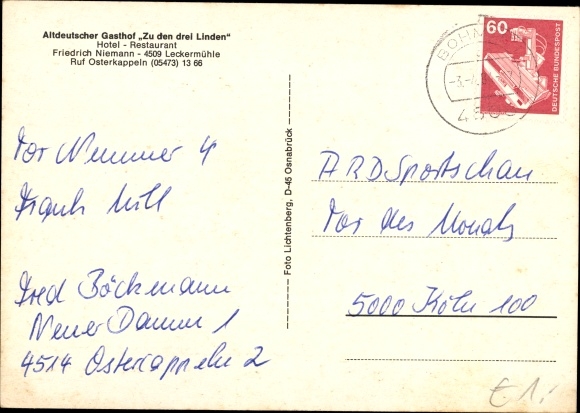 Altdeutscher Gasthof „Zu den drei Linden"
Hotel - Restaurant
Friedrich Niemann - 4509 Leckermühle
Ruf Osterkappeln (05473) 13 66
60
DEUTSCHE BUNDESPOST
Foto Lichtenberg, D-45 Osnabrück
Tor Nummer 4
Frank Mill
Fred Böckmann
Neuer Damm 1
4514 Ostercappeln 2
ARD Sportschau
Tor des Monats
5000 Köln 100
€ 1,-